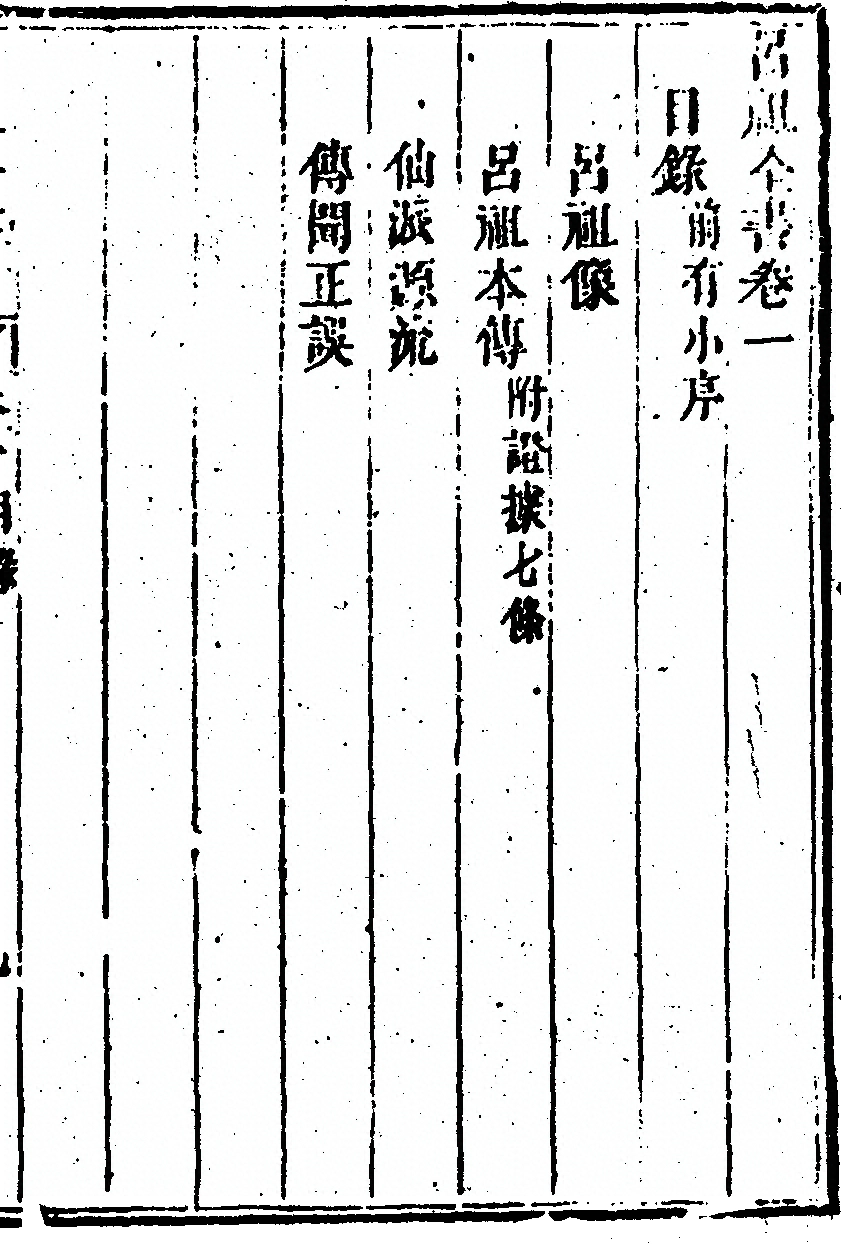 呂祖全書卷一
目錄 前有小序
呂祖像
呂祖本傳 附證據七條
仙派源流
傳聞正誤